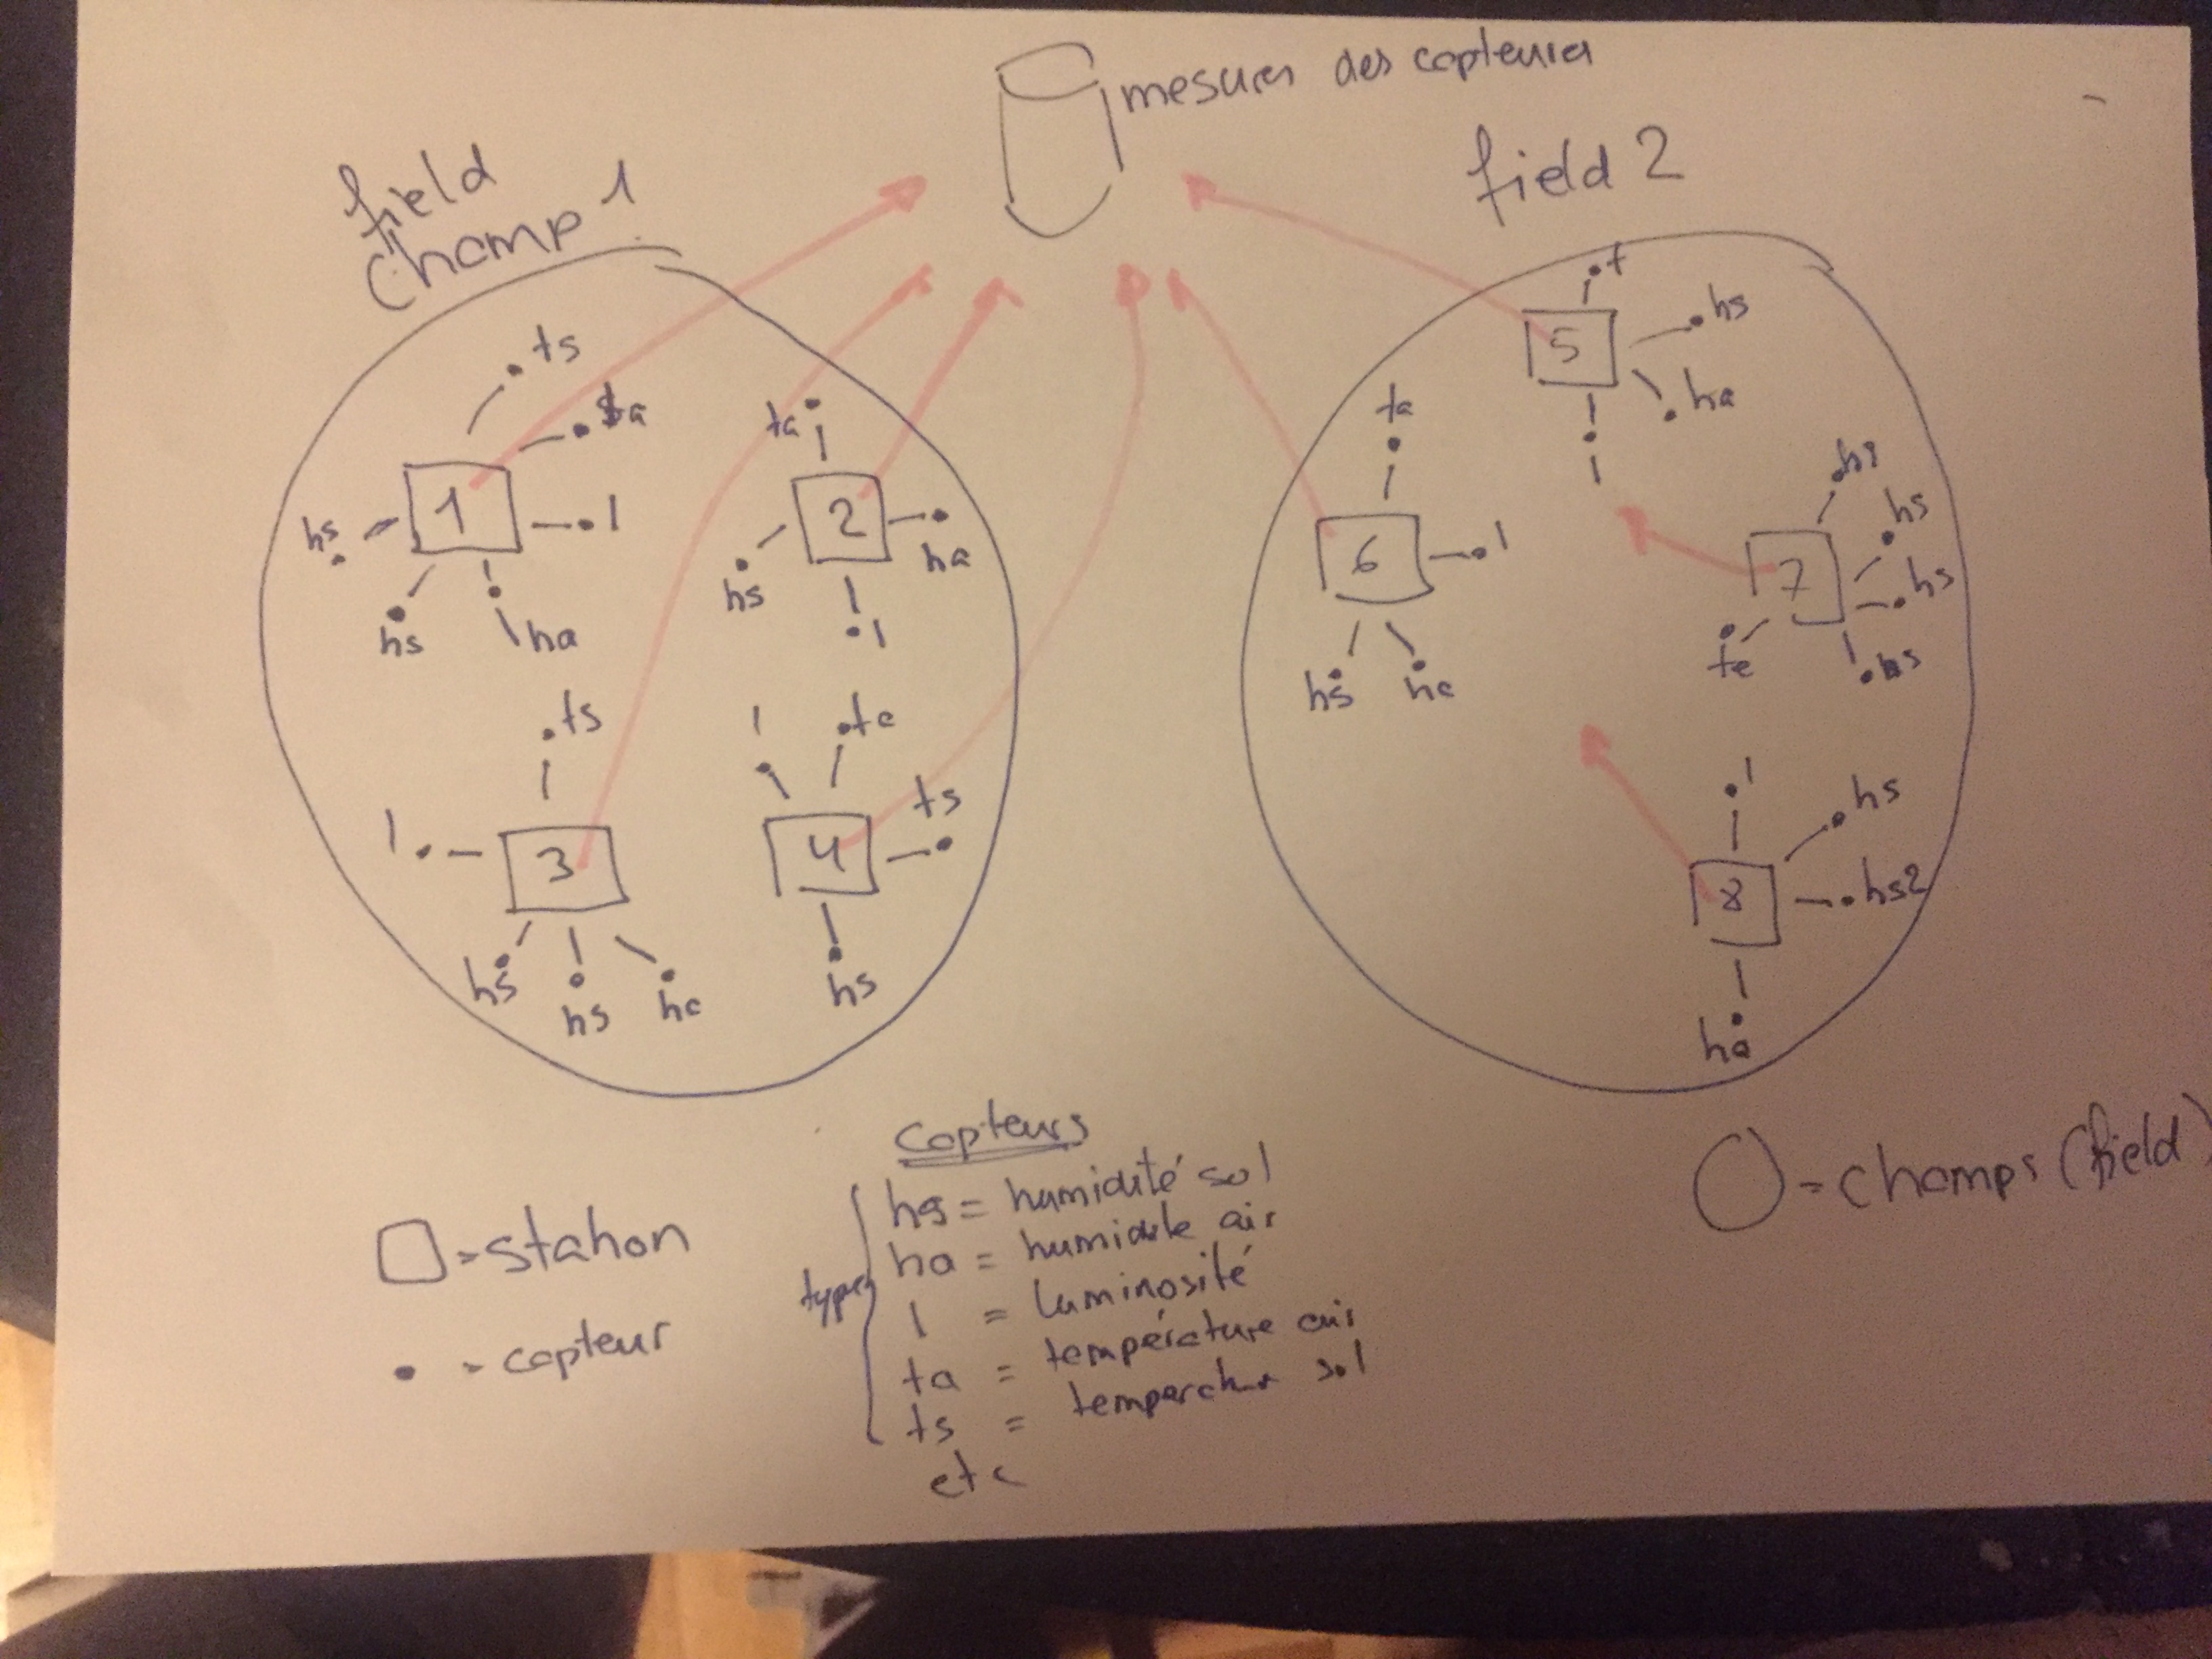 mesures des capteurs
field
Champ 1
field 2
1
hs
hs
ha
l
ta
ts
2
ta
hs
l
ha
3
l
hs
hs
ha
ts
4
l
ta
hs
ts
5
t
hs
ha
l
6
ta
hs
ha
l
7
ta
hs
hs
hs
hs
8
l
ha
hs
hs2
□ = station
• = capteur
Capteurs
types
hs = humidité sol
ha = humidité air
l = luminosité
ta = température air
ts = temperature sol
etc
○ = champs (field)